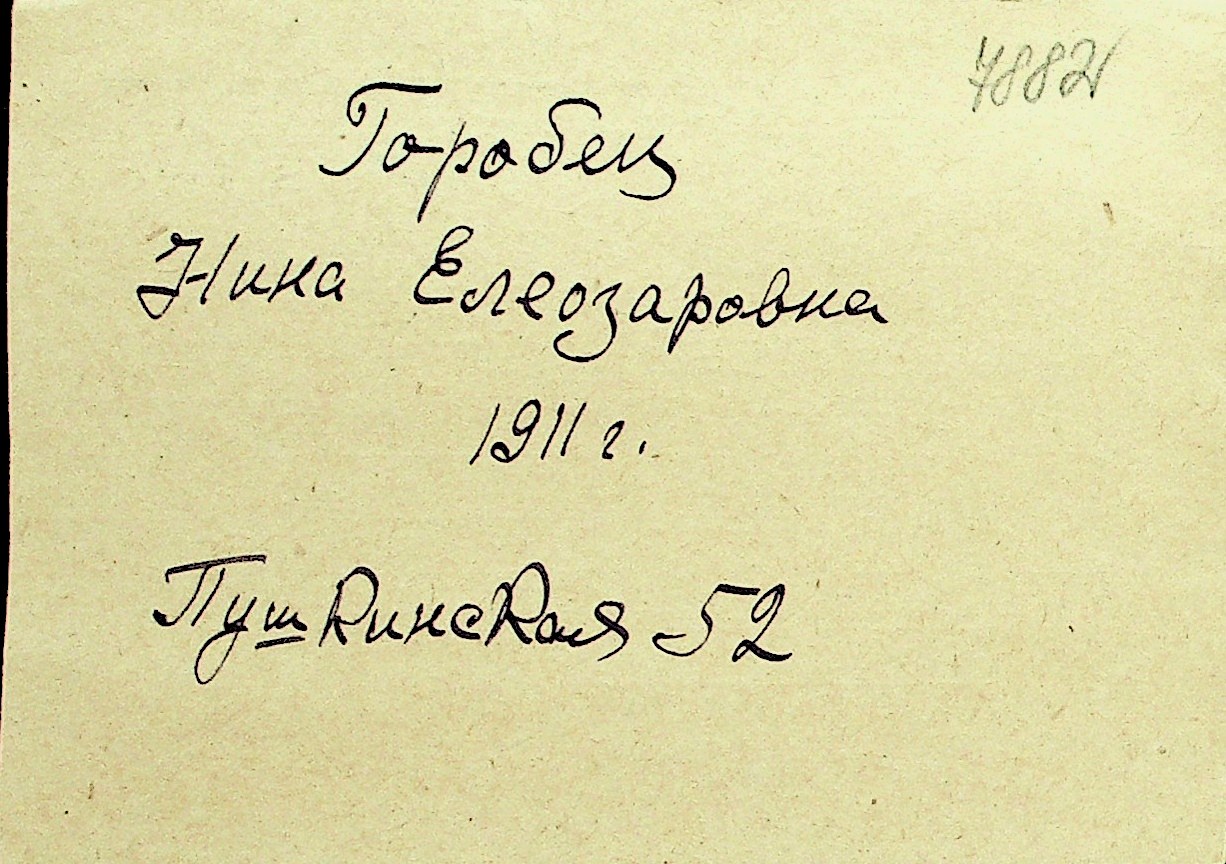 Горобец
Нина Елеозаровна
1911 г.
Пушкинская 52